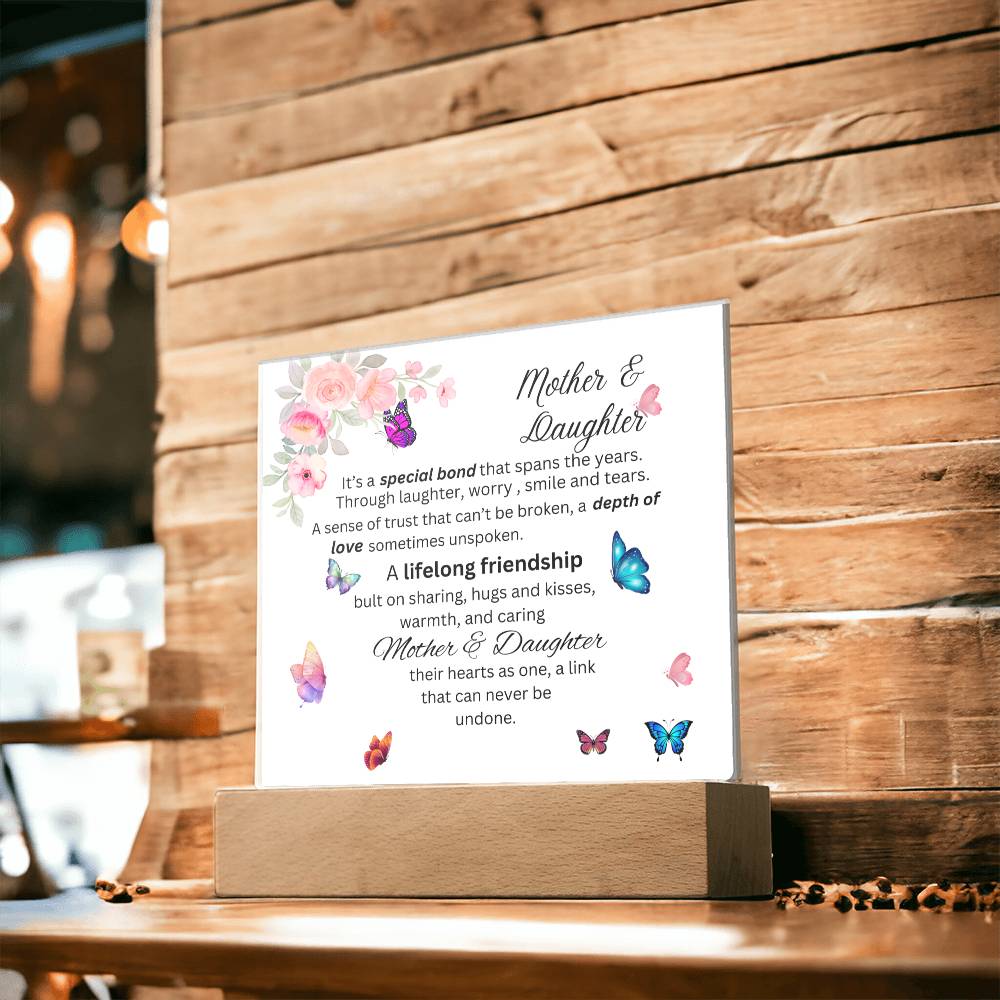 Mother &
Daughter
It's a special bond that spans the years.
Through laughter, worry , smile and tears.
A sense of trust that can't be broken, a depth of
love sometimes unspoken.
A lifelong friendship
bult on sharing, hugs and kisses,
warmth, and caring
Mother & Daughter
their hearts as one, a link
that can never be
undone.